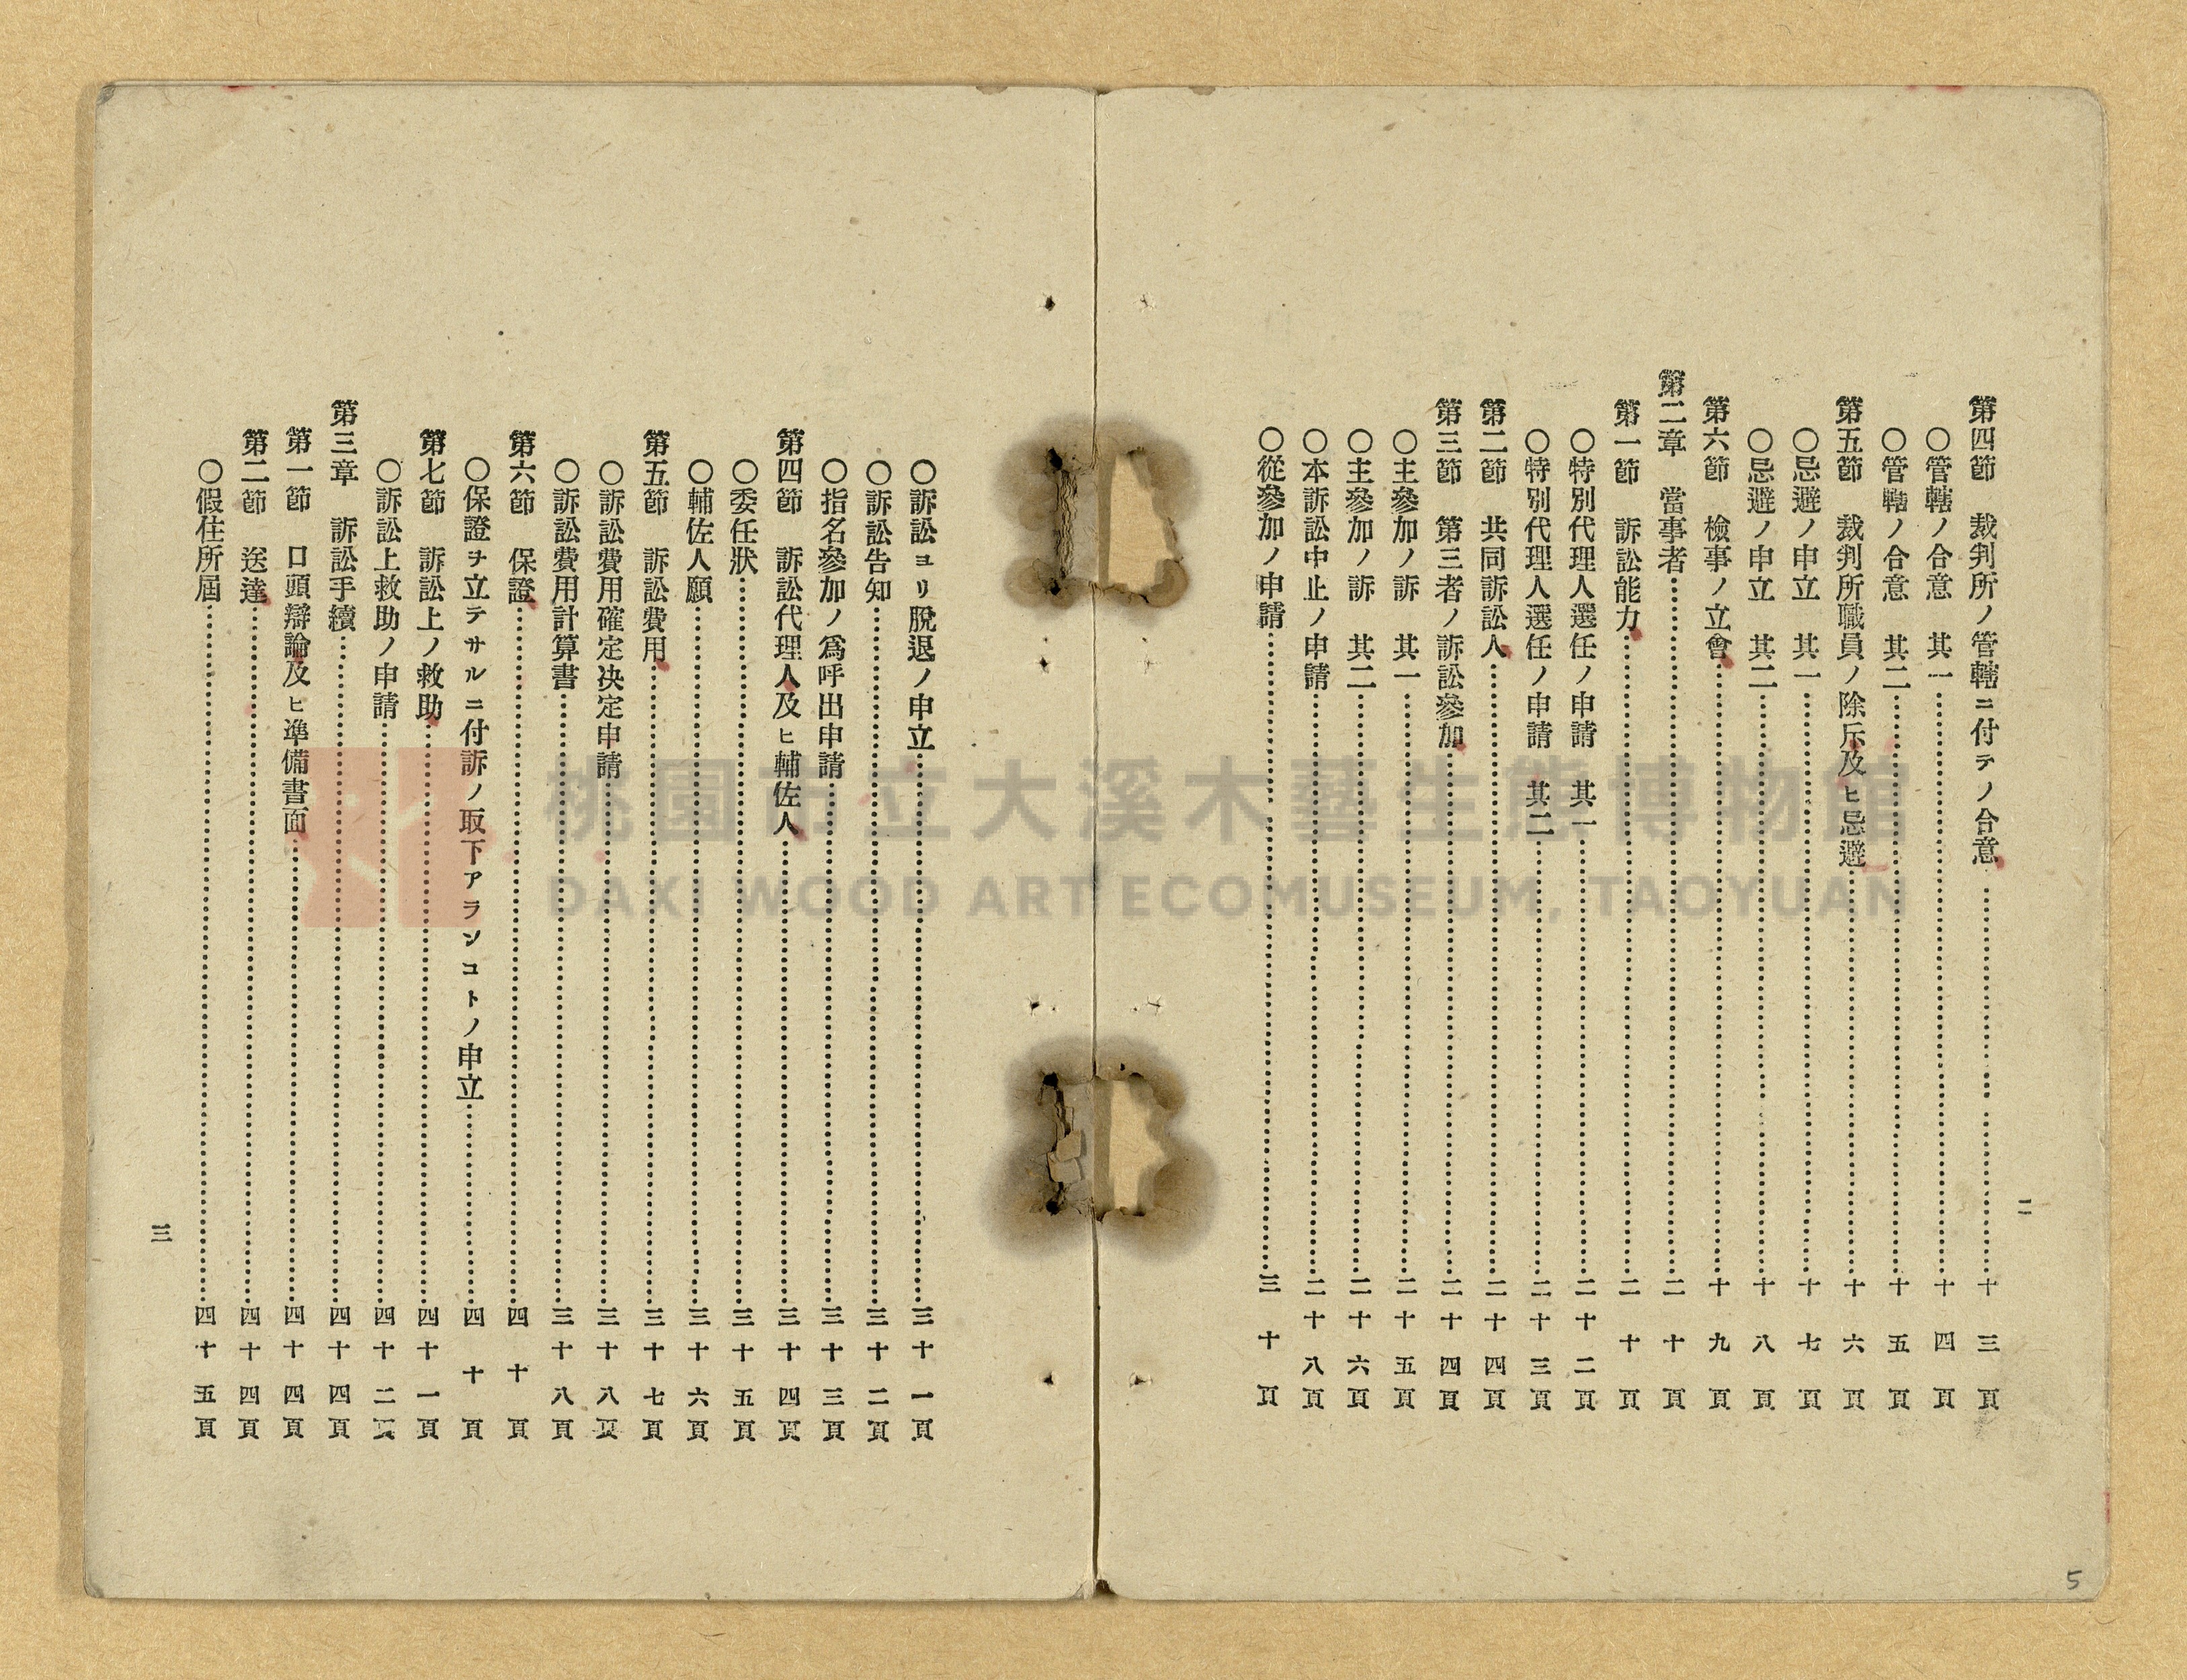 二
第四節　裁判所ノ管轄ニ付テノ合意……十三頁
○管轄ノ合意　其一……十四頁
○管轄ノ合意　其二……十五頁
第五節　裁判所職員ノ除斥及ヒ忌避……十六頁
○忌避ノ申立　其一……十七頁
○忌避ノ申立　其二……十八頁
第六節　檢事ノ立會……十九頁
第二章　當事者……二十頁
第一節　訴訟能力……二十頁
○特別代理人選任ノ申請　其一……二十二頁
○特別代理人選任ノ申請　其二……二十三頁
第二節　共同訴訟人……二十四頁
第三節　第三者ノ訴訟參加……二十四頁
○主參加ノ訴　其一……二十五頁
○主參加ノ訴　其二……二十六頁
○本訴訟中止ノ申請……二十八頁
○從參加ノ申請……三十頁
○訴訟ヨリ脫退ノ申立……三十一頁
○訴訟告知……三十二頁
○指名參加ノ爲呼出申請……三十三頁
第四節　訴訟代理人及ヒ輔佐人……三十四頁
○委任狀……三十五頁
○輔佐人願……三十六頁
第五節　訴訟費用……三十七頁
○訴訟費用確定決定申請……三十八頁
○訴訟費用計算書……三十八頁
第六節　保證……四十頁
○保證ヲ立テサルニ付訴ノ取下アランコトノ申立……四十頁
第七節　訴訟上ノ救助……四十一頁
○訴訟上救助ノ申請……四十二頁
第三章　訴訟手續……四十四頁
第一節　口頭辯論及ヒ準備書面……四十四頁
第二節　送達……四十四頁
○假住所屆……四十五頁
三
5
桃園市立大溪木藝生態博物館
DAXI WOOD ART ECOMUSEUM, TAOYUAN